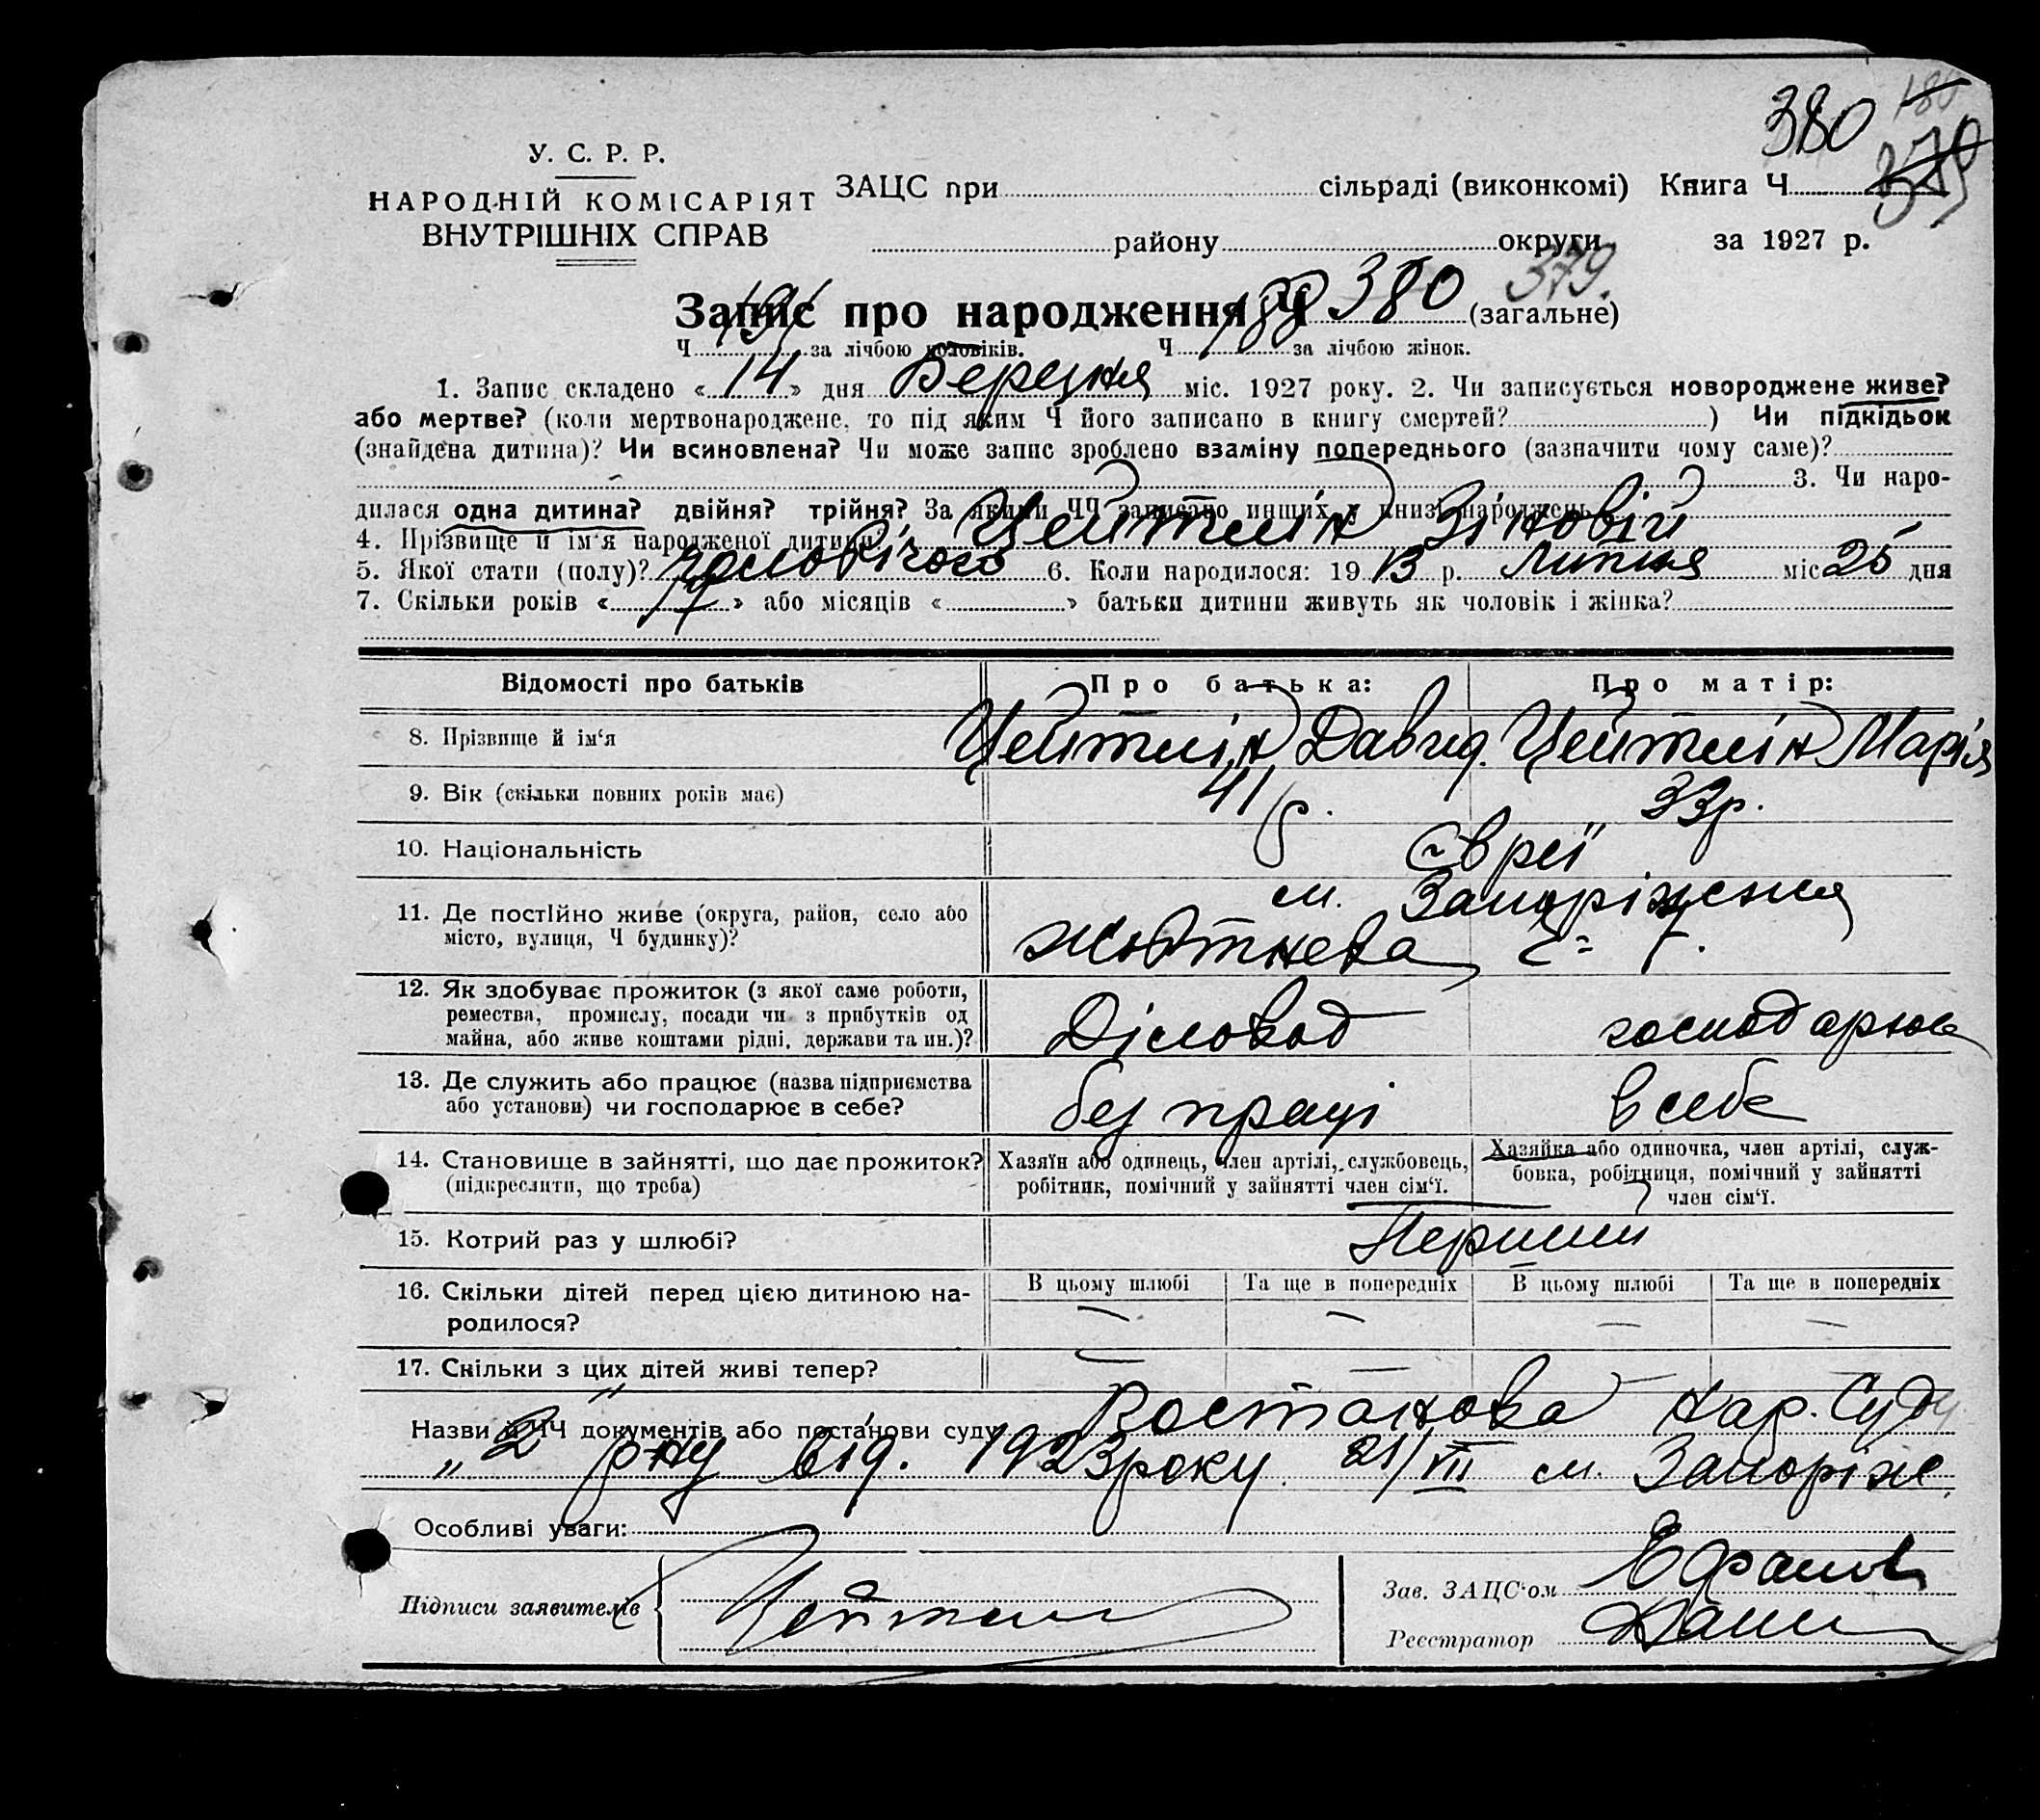 180
380
379
У. С. Р. Р.
НАРОДНІЙ КОМІСАРІЯТ
ВНУТРІШНІХ СПРАВ
ЗАЦС при сільраді (виконкомі) Книга Ч
району округи за 1927 р.
379.
Запис про народження Ч 380 (загальне)
Ч 191 за лічбою чоловіків. Ч 188 за лічбою жінок.
1. Запис складено « 14 » дня Березня міс. 1927 року. 2. Чи записується новороджене живе?
або мертве? (коли мертвонароджене, то під яким Ч його записано в книгу смертей? ) Чи підкідьок
(знайдена дитина)? Чи всиновлена? Чи може запис зроблено взаміну попереднього (зазначити чому саме)?
3. Чи наро-
дилася одна дитина? двійня? трійня? За якими ЧЧ записано инших у книзі народжень
4. Прізвище й ім‘я народженої дитини? Цейтлін Зіновій
5. Якої стати (полу)? чоловічого 6. Коли народилося: 19 13 р. Липня міс 25 дня
7. Скільки років « 17 » або місяців « » батьки дитини живуть як чоловік і жінка?
Відомості про батьків Про батька: Про матір:
8. Прізвище й ім‘я Цейтлін Давид. Цейтлін Марія
9. Вік (скільки повних років має) 41 р. 33 р.
10. Національність Євреї
11. Де постійно живе (округа, район, село або м. Запоріжжя
місто, вулиця, Ч будинку)? Жовтнева Ч= 7.
12. Як здобуває прожиток (з якої саме роботи,
ремества, промислу, посади чи з прибутків од Діловод господарює
майна, або живе коштами рідні, держави та ин.)?
13. Де служить або працює (назва підприємства
або установи) чи господарює в себе? без праці в себе
14. Становище в зайнятті, що дає прожиток?
(підкреслити, що треба)
Хазяїн або одинець, член артілі, службовець,
робітник, помічний у зайнятті член сім‘ї.
Хазяйка або одиночка, член артілі, служ-
бовка, робітниця, помічний у зайнятті
член сім‘ї.
15. Котрий раз у шлюбі? Перший
16. Скільки дітей перед цією дитиною на-
родилося?
В цьому шлюбі Та ще в попередніх В цьому шлюбі Та ще в попередніх
17. Скільки з цих дітей живі тепер?
Назви й ЧЧ документів або постанови суду Постанова Нар. Суду
„2" р-ну від. 1923 року 21/VII м. Запоріж.
Особливі уваги:
Підписи заявителів Цейтлин
Зав. ЗАЦС‘ом
Реєстратор